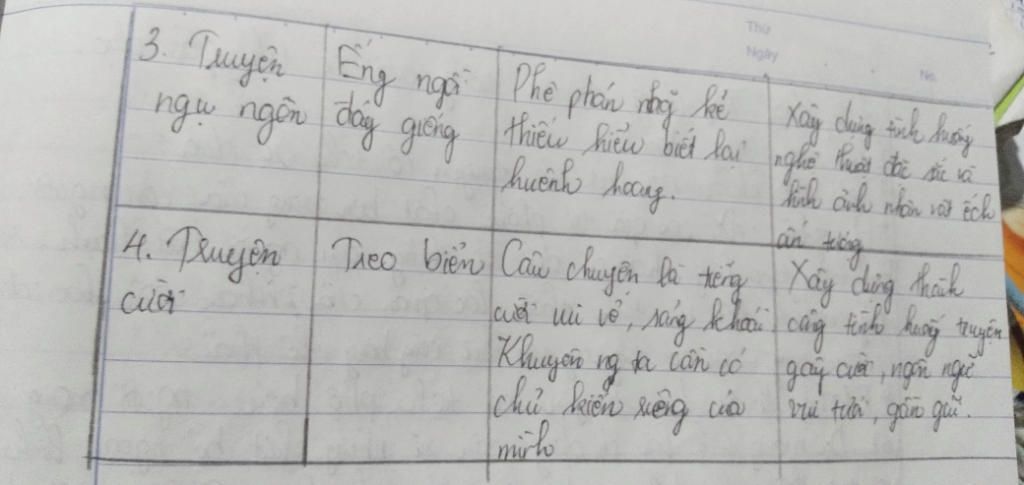 Thứ
Ngày
No.
3. Truyện
ngụ ngôn
Ếng ngồi
đáy giếng
Phê phán nhg kẻ
thiếu hiểu biết lại
huênh hoang.
Xây dựng tình huống
nghệ thuật đặc sắc và
hình ảnh nhân vật ếch
ấn tượng
4. Truyện
cười
Treo biển
Câu chuyện là tiếng
cười vui vẻ, sảng khoái
Khuyên ng ta cần có
chủ kiến riêng của
mình
Xây dựng thành
công tình huống truyện
gây cười, ngôn ngữ
vui tươi, gần gũi.